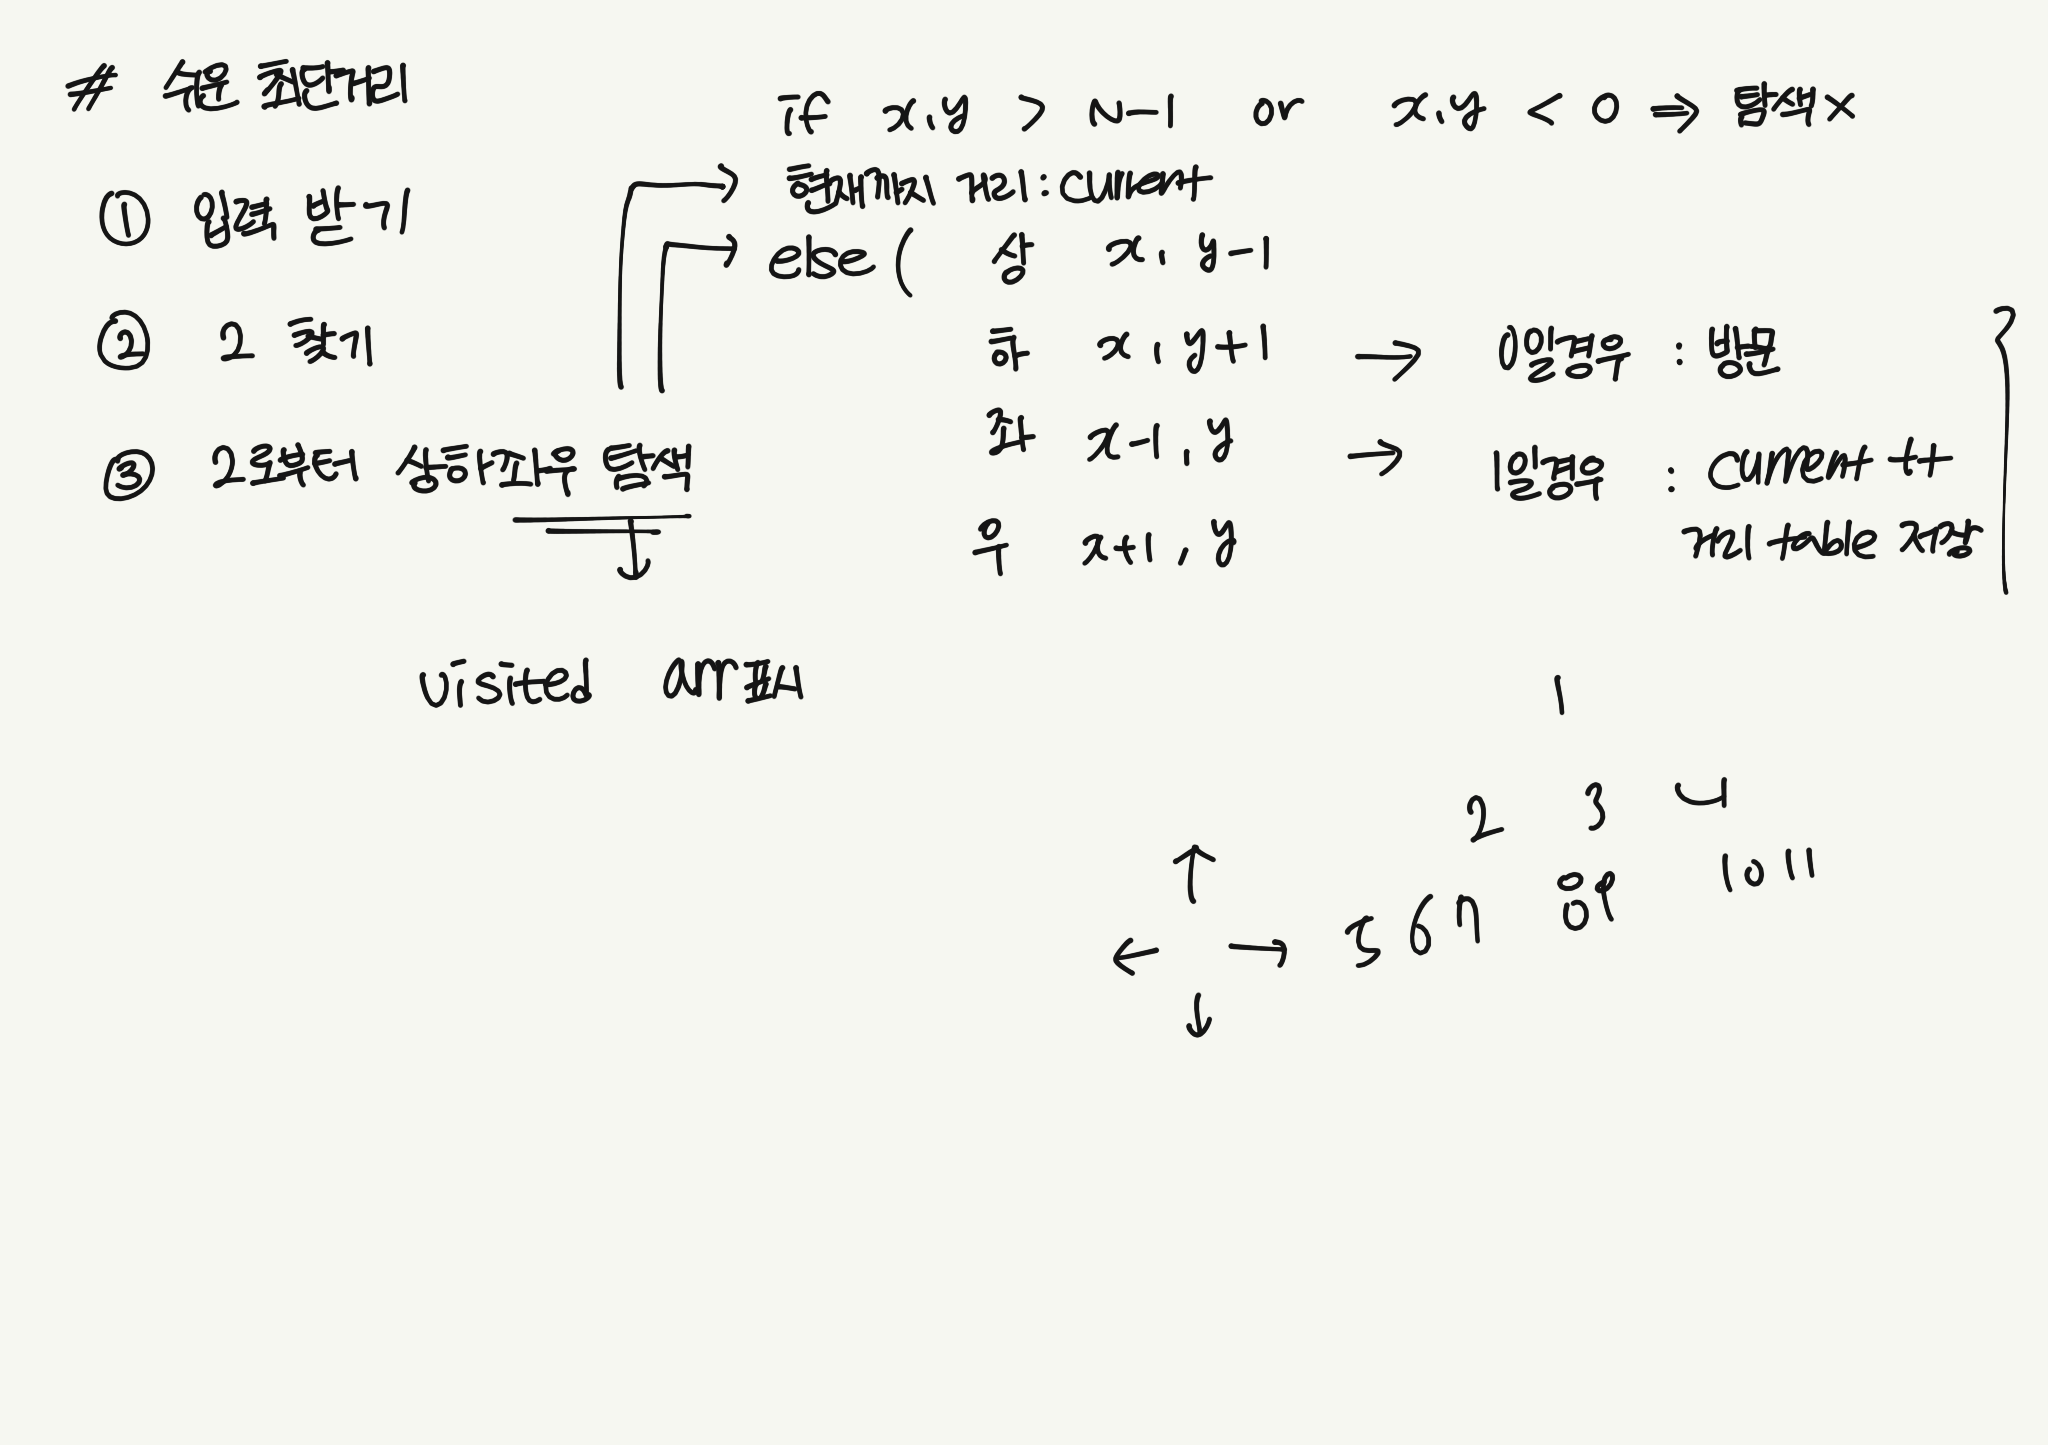 # 쉬운 최단거리
① 입력 받기
② 2 찾기
③ 2로부터 상하좌우 탐색
visited arr표시
if x,y > N-1 or x,y < 0 ⇒ 탐색×
현재까지 거리 : current
else ( 상 x, y-1
하 x, y+1 → 0일경우 : 방문
좌 x-1, y → 1일경우 : current ++
거리 table 저장
우 x+1, y
1
2 3 4
5 6 7 8 9 10 11